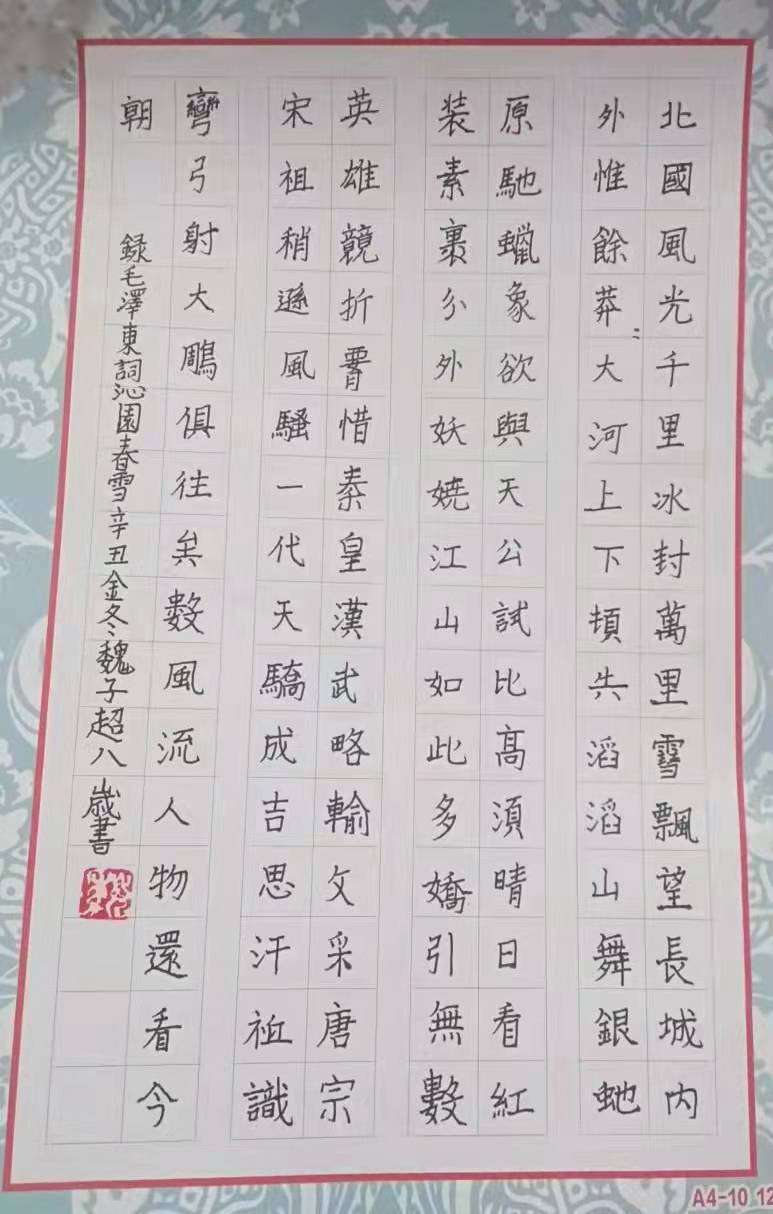 北國風光千里冰封萬里雪飄望長城内
外惟餘莽〻大河上下頓失滔滔山舞銀虵
原馳蠟象欲與天公試比高須晴日看紅
装素裹分外妖嬈江山如此多嬌引無數
英雄競折腰惜秦皇漢武略輸文采唐宗
宋祖稍遜風騷一代天驕成吉思汗祗識
彎弓射大鵰俱往矣數風流人物還看今
朝
録毛澤東詞沁園春雪辛丑金冬魏子超八歲書
A4-10 12